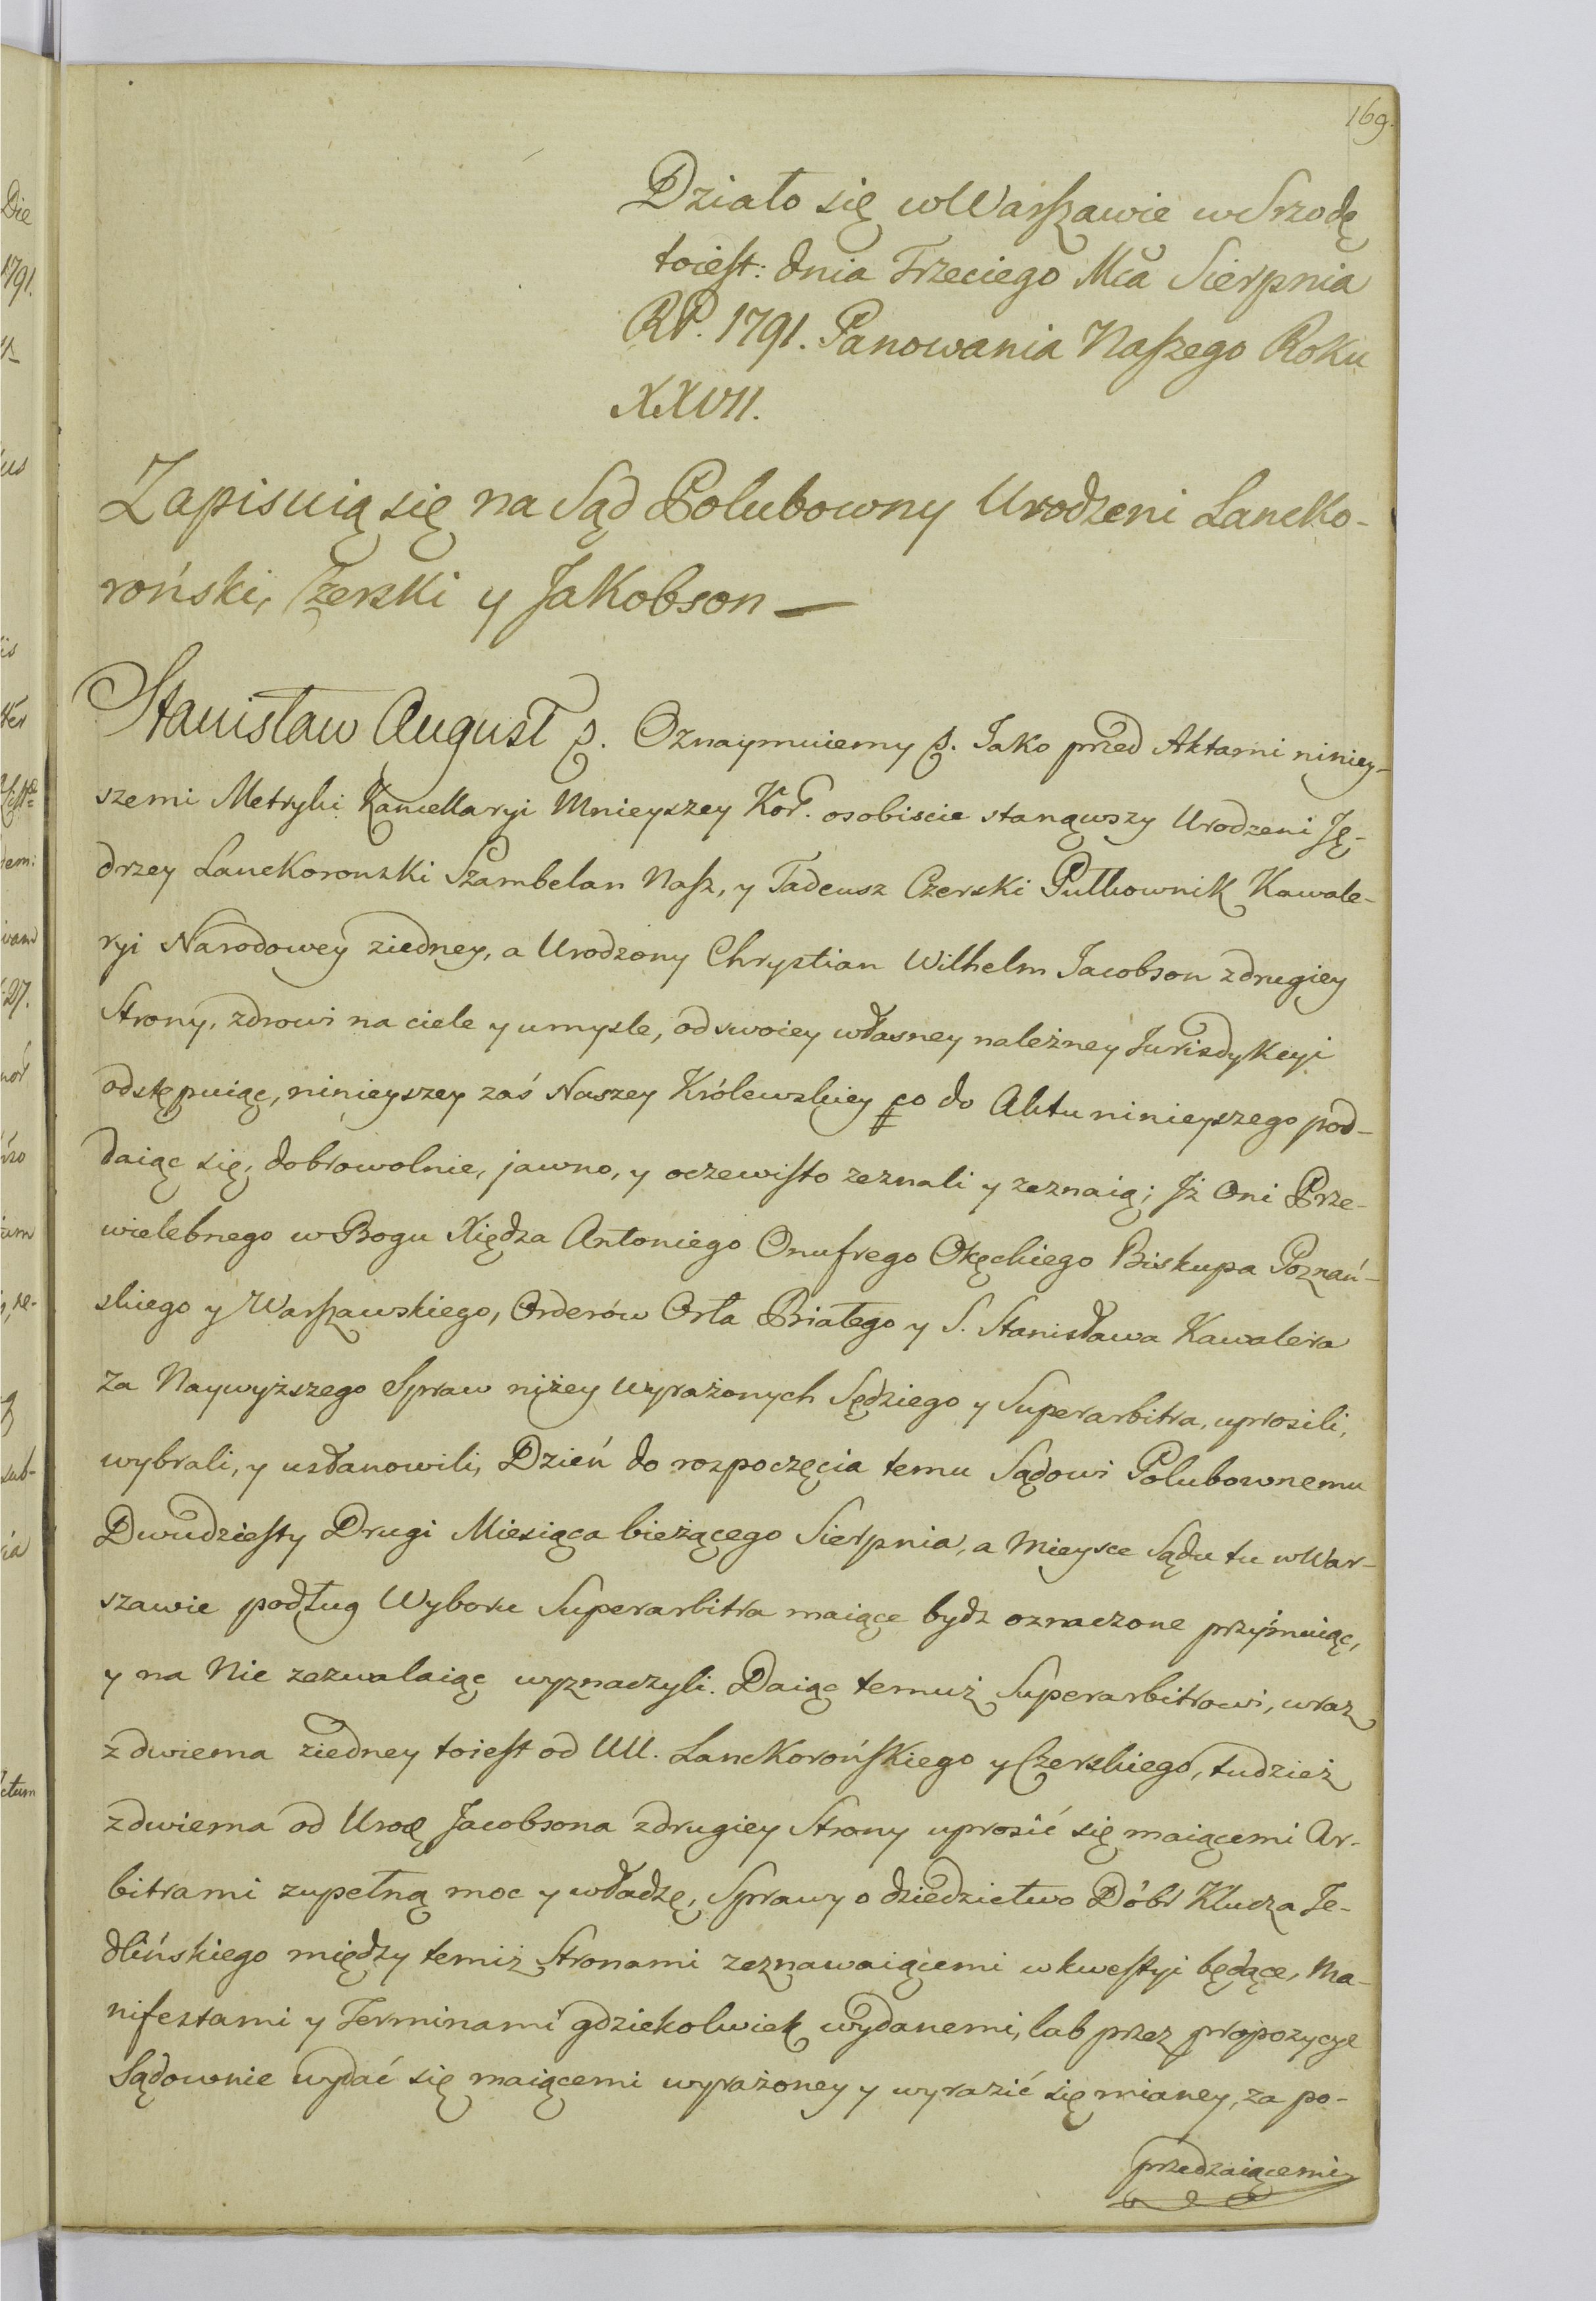 169.
Działo się w Warszawie w Srzodę
toiest: dnia Trzeciego Mca Sierpnia
RP. 1791. Panowania Naszego Roku
XXVII.
Zapisuią się na Sąd Polubowny Urodzeni Lancko-
roński, Czerski y Jakobson —
Stanisław August p. Oznaymuiemy p. Jako przed Aktami niniey-
szemi Metryki Kancellaryi Mnieyszey Kor. osobiscie stanąwszy Urodzeni Ję-
drzey Lanckoronski Szambelan Nasz, y Tadeusz Czerski Pułkownik Kawale-
ryi Narodowey ziedney, a Urodzony Chrystian Wilhelm Jacobson zdrugiey
Strony, zdrowi na ciele y umysle, od swoiey własney należney Jurisdykcyi
odstępuiąc, ninieyszey zaś Naszey Królewskiey co do Aktu ninieyszego pod-
daiąc się, dobrowolnie, jawno, y oczewisto zeznali y zeznaią; Jż Oni Prze-
wielebnego w Bogu Xiędza Antoniego Onufrego Okęckiego Biskupa Poznań-
skiego y Warszawskiego, Orderów Orła Białego y S. Stanisława Kawalera
za Naywyższego Spraw niżey wyrażonych Sędziego y Superarbitra, uprosili,
wybrali, y ustanowili, Dzień do rozpoczęcia temu Sądowi Polubownemu
Dwudziesty Drugi Miesiąca bieżącego Sierpnia, a Mieysce Sądu tu w War-
szawie podług Wyboru Superarbitra maiące bydz oznaczone przyimuiąc,
y na Nie zezwalaiąc wyznaczyli. Daiąc temuż Superarbitrowi, wraz
z dwiema ziedney toiest od UU. Lanckorońskiego y Czerskiego, tudzież
zdwiema od Urod Jacobsona zdrugiey Strony uprosić się maiącemi Ar-
bitrami zupełną moc y władzę, Sprawy o dziedzictwo Dóbr Klucza Je-
dlińskiego między temiż Stronami zeznawaiącemi w kwestyi będące, Ma-
nifestami y Terminami gdziekolwiek wydanemi, lub przez propozycye
Sądownie wydać się maiącemi wyrażoney y wyrazić się mianey, za po-
przedzaiącemi
Die
1791.